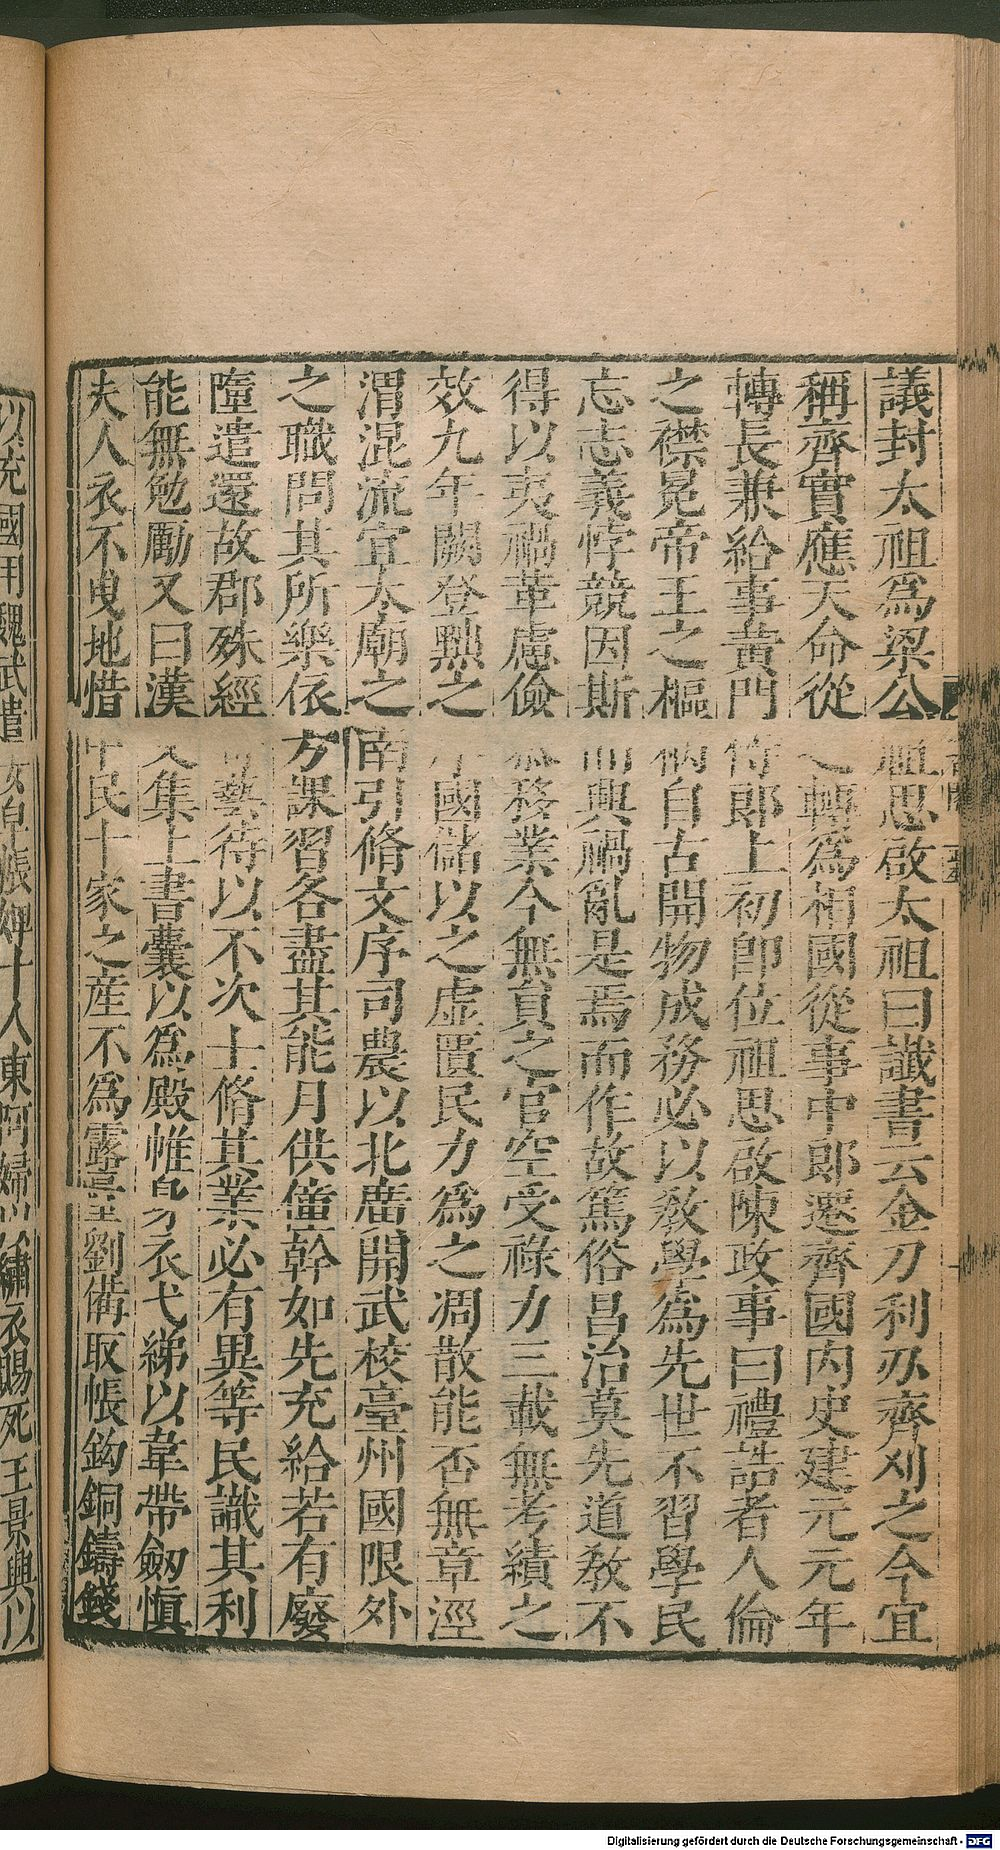 議封太祖爲梁公祖思啟太祖曰讖書云金刀利刃齊刈之今宜
稱齊實應天命從之轉爲相國從事中郎遷齊國內史建元元年
轉長兼給事黃門侍郎上初卽位祖思啟陳政事曰禮誥者人倫
之襟冕帝王之樞柄自古開物成務必以教學爲先世不習學民
忘志義悖競因斯而興禍亂是焉而作故篤俗昌治莫先道教不
得以夷禍革慮儉泰移業今無員之官空受祿力三載無考績之
效九年闕登黜之序國儲以之虛匱民力爲之凋散能否無章涇
渭混流宜太廟之南引脩文序司農以北廣開武校臺州國限外
之職問其所樂依方課習各盡其能月供僮幹如先充給若有廢
墮遣還故郡殊經奇藝待以不次士脩其業必有異等民識其利
能無勉勵又曰漢文集上書囊以爲殿帷身衣弋綈以韋帶劒愼
夫人衣不曳地惜中民十家之産不爲露臺劉備取帳鉤銅鑄錢
以充國用魏武遣女皁帳婢十人東阿婦以繡衣賜死王景興以
Digitalisierung gefördert durch die Deutsche Forschungsgemeinschaft - DFG